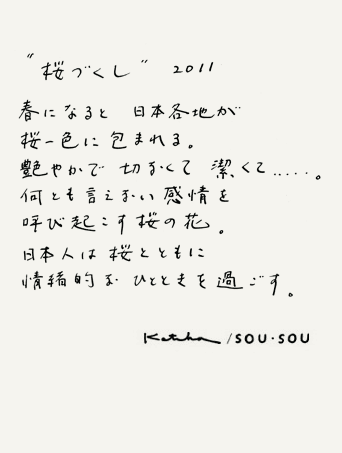 "桜づくし" 2011
春になると 日本各地が
桜一色に包まれる。
艶やかで 切なくて 潔くて.....。
何とも言えない感情を
呼び起こす桜の花。
日本人は桜とともに
情緒的な ひとときを過ごす。
Katsuji / SOU・SOU